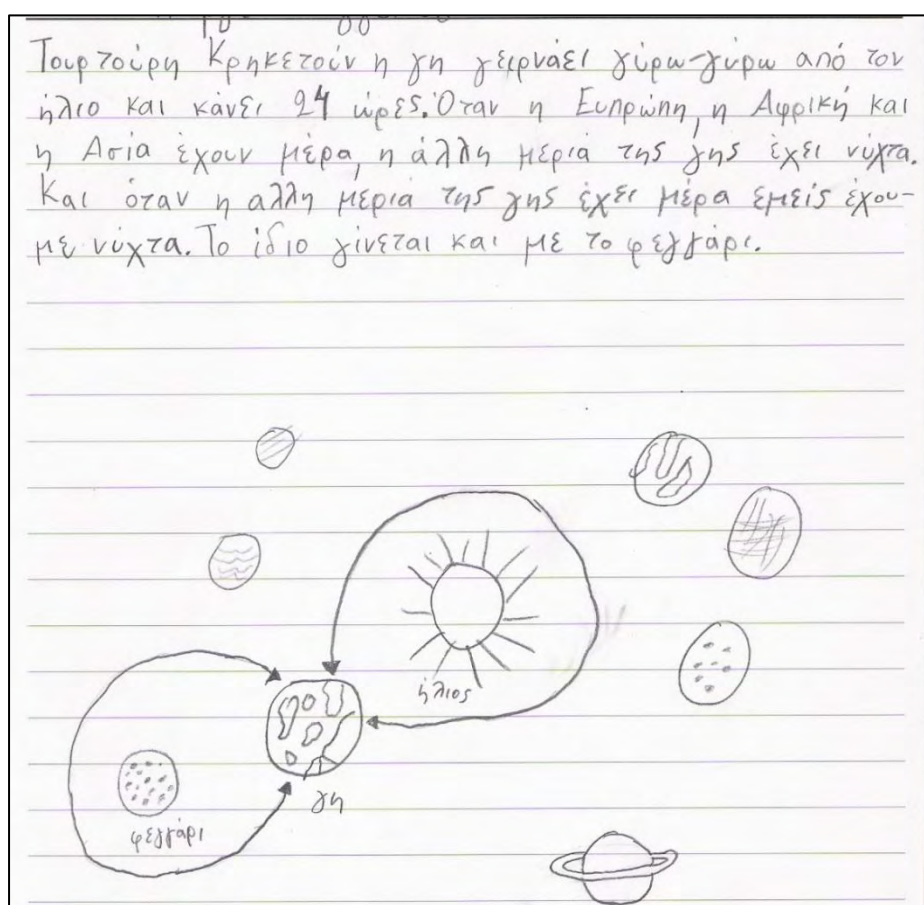 Τουρτούρη Κρηκετούν η γη γειρνάει γύρω-γύρω από τον
ήλιο και κάνει 24 ώρες. Όταν η Ευπρώπη, η Αφρική και
η Ασία έχουν μέρα, η άλλη μέρια της γης έχει νύχτα.
Και όταν η αλλη μέρια της γης έχει μέρα εμείς έχου-
με νύχτα. Το ίδιο γίνεται και με το φεγγάρι.
ήλιος
γη
φεγγάρι